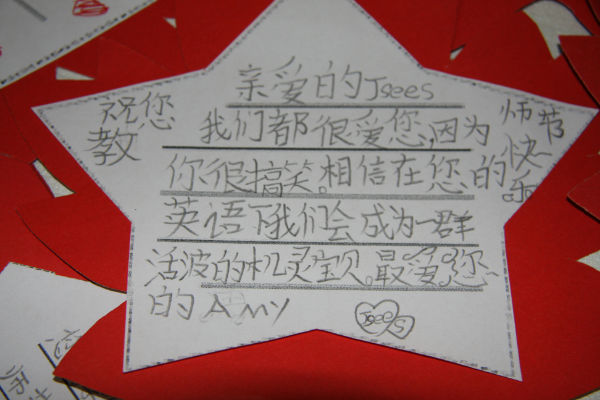 亲爱的Jsees
我们都很爱您,因为
你很搞笑。相信在您的
英语下我们会成为一群
活波的机灵宝贝。最爱您
的 AMY
祝您
教
师节
快
乐
Jsees